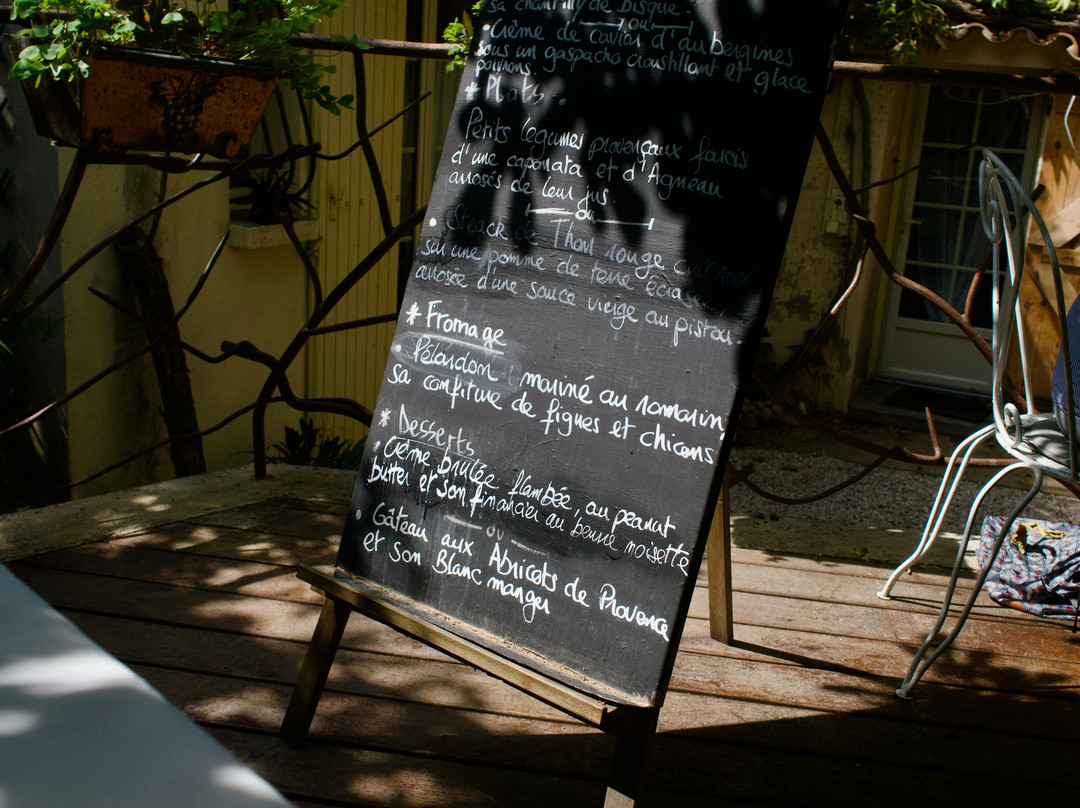 sa chantilly de bisque.
ou
• Crème de caviar d'aubergines
sous un gaspacho croustillant et glace
poivrons.
* Plats.
Petits légumes provençaux farcis
d'une caponata et d'Agneau
arrosés de leur jus.
ou
• Steack de Thon rouge
sur une pomme de terre écrasée
arrosée d'une sauce vierge au pistou.
* Fromage
• Pélardon mariné au romarin,
sa confiture de figues et chicons
* Desserts
• Crème brulée flambée, au peanut
butter et son financier au beurre noisette
ou
• Gâteau aux Abricots de Provence
et son Blanc manger